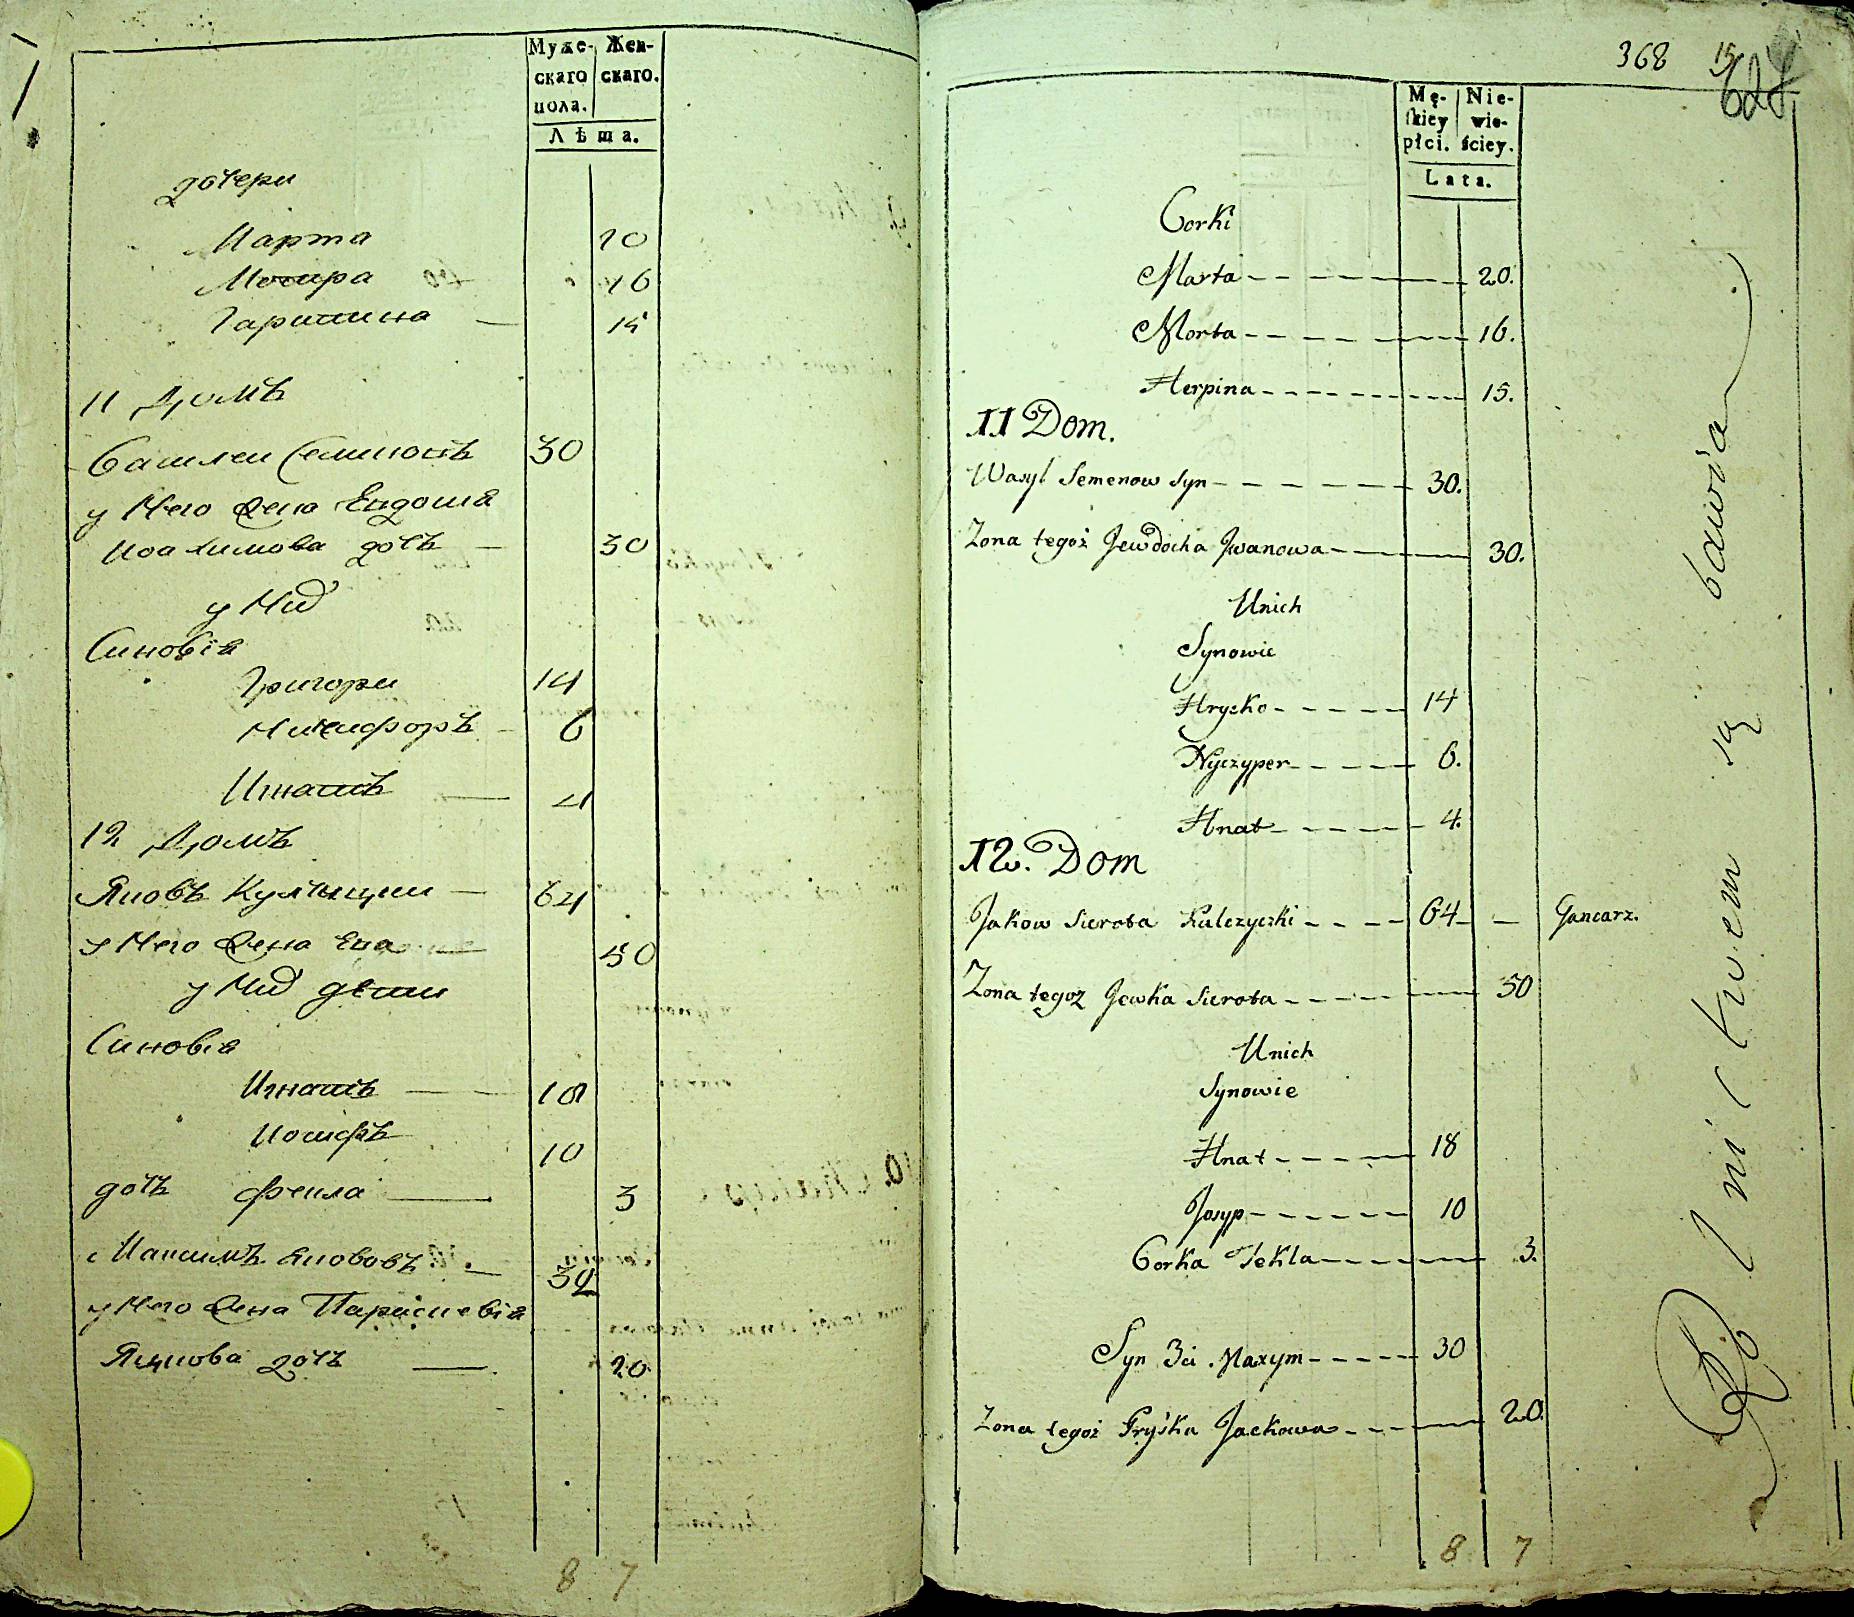 Муже- Жен-
скаго скаго.
пола.
Лѣта.
дочери
Марта 20
Мотра 16
Гарпина 15
11 Домъ
Василеи Семионъ 30
у Него жена Евдошя
Иоакимова дочъ 30
у Них
Синовія
Григори 14
Никифоръ 6
Игнатъ 4
12 Домъ
Яковъ Кулчицки 64
у Него жена Ева 50
у Них дети
Синовія
Игнатъ 18
Иосифъ 10
дочъ Фекла 3
Максимъ Якововъ 32
у Него жена Параскевія
Яцкова дочъ 20
8 7
368 15
628
Mę- Nie-
skiey wie-
płci. ściey.
Lata.
Corki
Marta 20.
Morta 16.
Herpina 15.
11 Dom.
Wasyl Semenow Syn 30.
Zona tegoż Jewdocha Jwanowa 30.
Unich
Synowie
Hryćko 14
Nyczyper 6.
Hnat 4.
12. Dom
Jakow Sierota Kulczycki 64 Gancarz.
Zona tegoż Jewka Sierota 50
Unich
Synowie
Hnat 18
Josyp 10
Corka Tekla 3.
Syn 3ci Maxym 30
Zona tegoż Pryśka Jackowa 20.
8 7
Rolnictwem się bawią